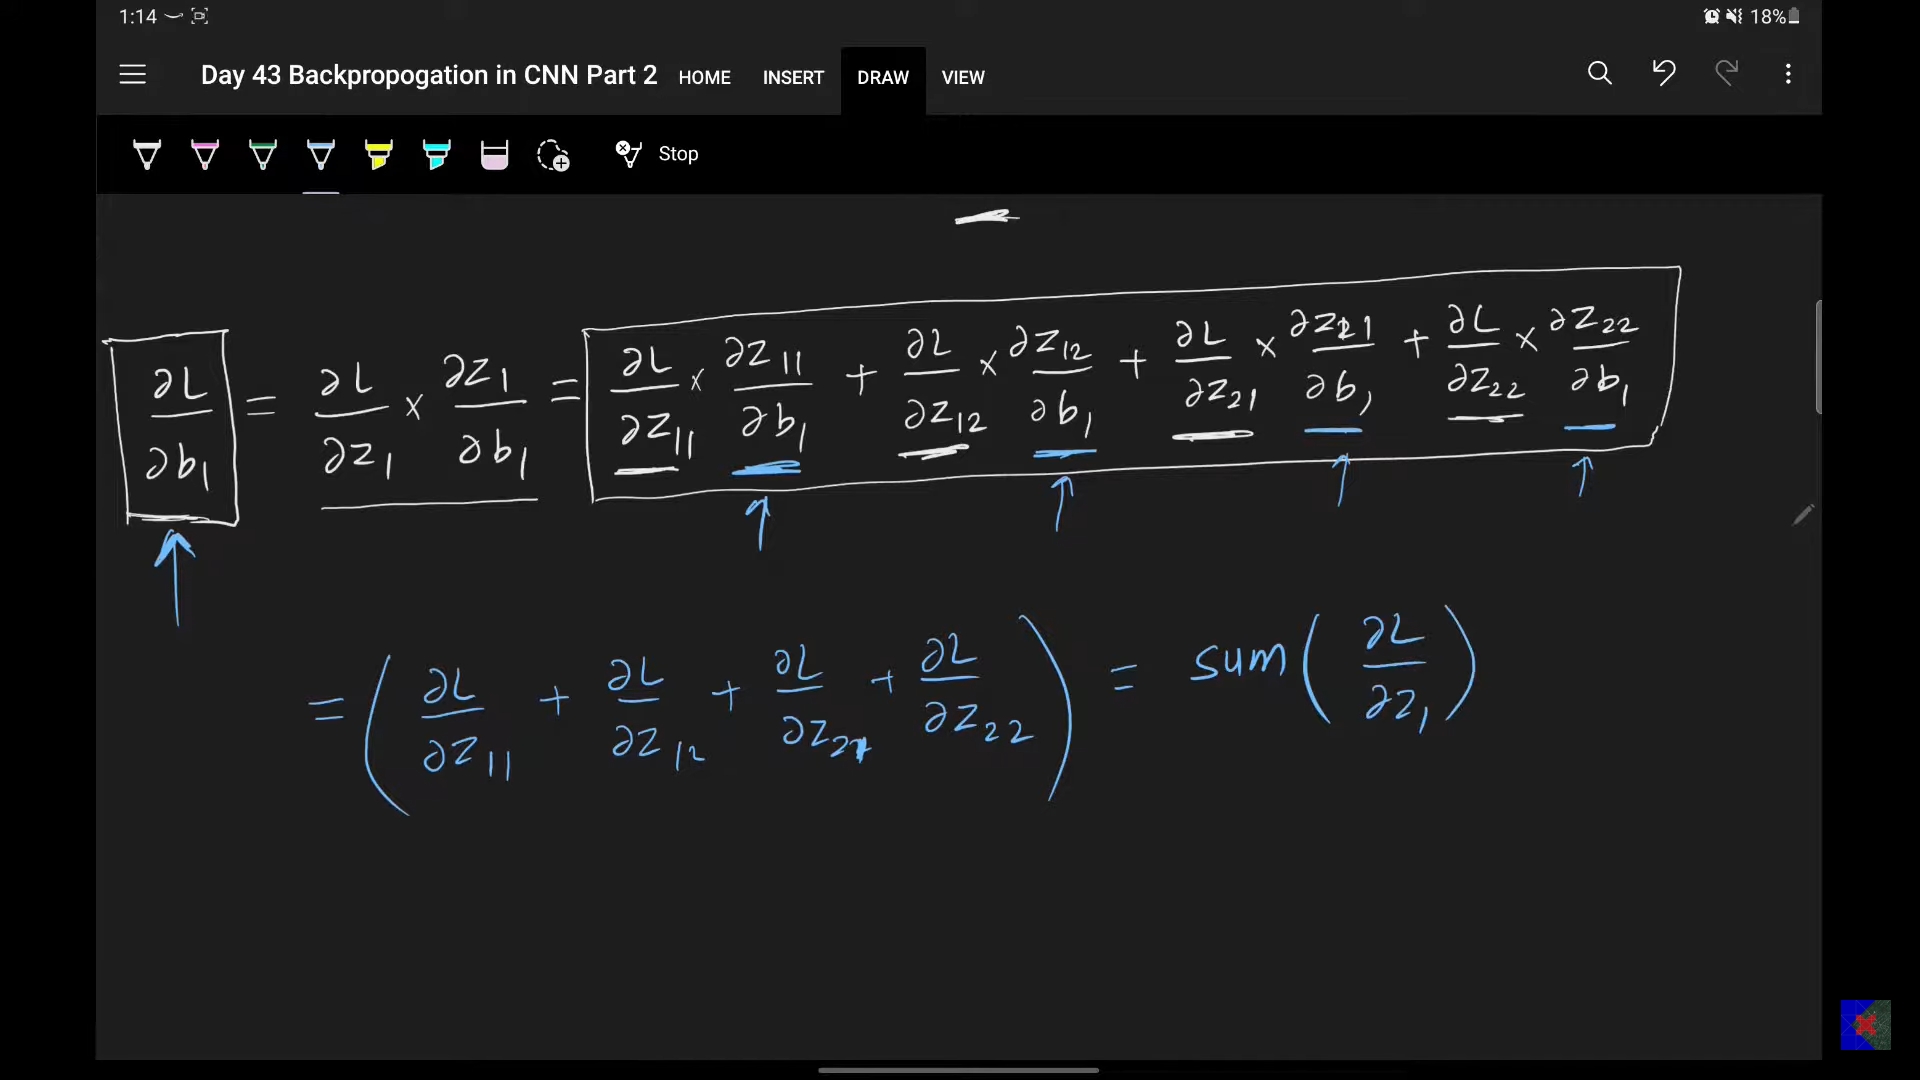 1:14 18%
Day 43 Backpropogation in CNN Part 2 HOME INSERT DRAW VIEW
Stop
∂L/∂b₁ = ∂L/∂z₁ × ∂z₁/∂b₁ = ∂L/∂z₁₁ × ∂z₁₁/∂b₁ + ∂L/∂z₁₂ × ∂z₁₂/∂b₁ + ∂L/∂z₂₁ × ∂z₂₁/∂b₁ + ∂L/∂z₂₂ × ∂z₂₂/∂b₁
= (∂L/∂z₁₁ + ∂L/∂z₁₂ + ∂L/∂z₂₁ + ∂L/∂z₂₂) = sum(∂L/∂z₁)